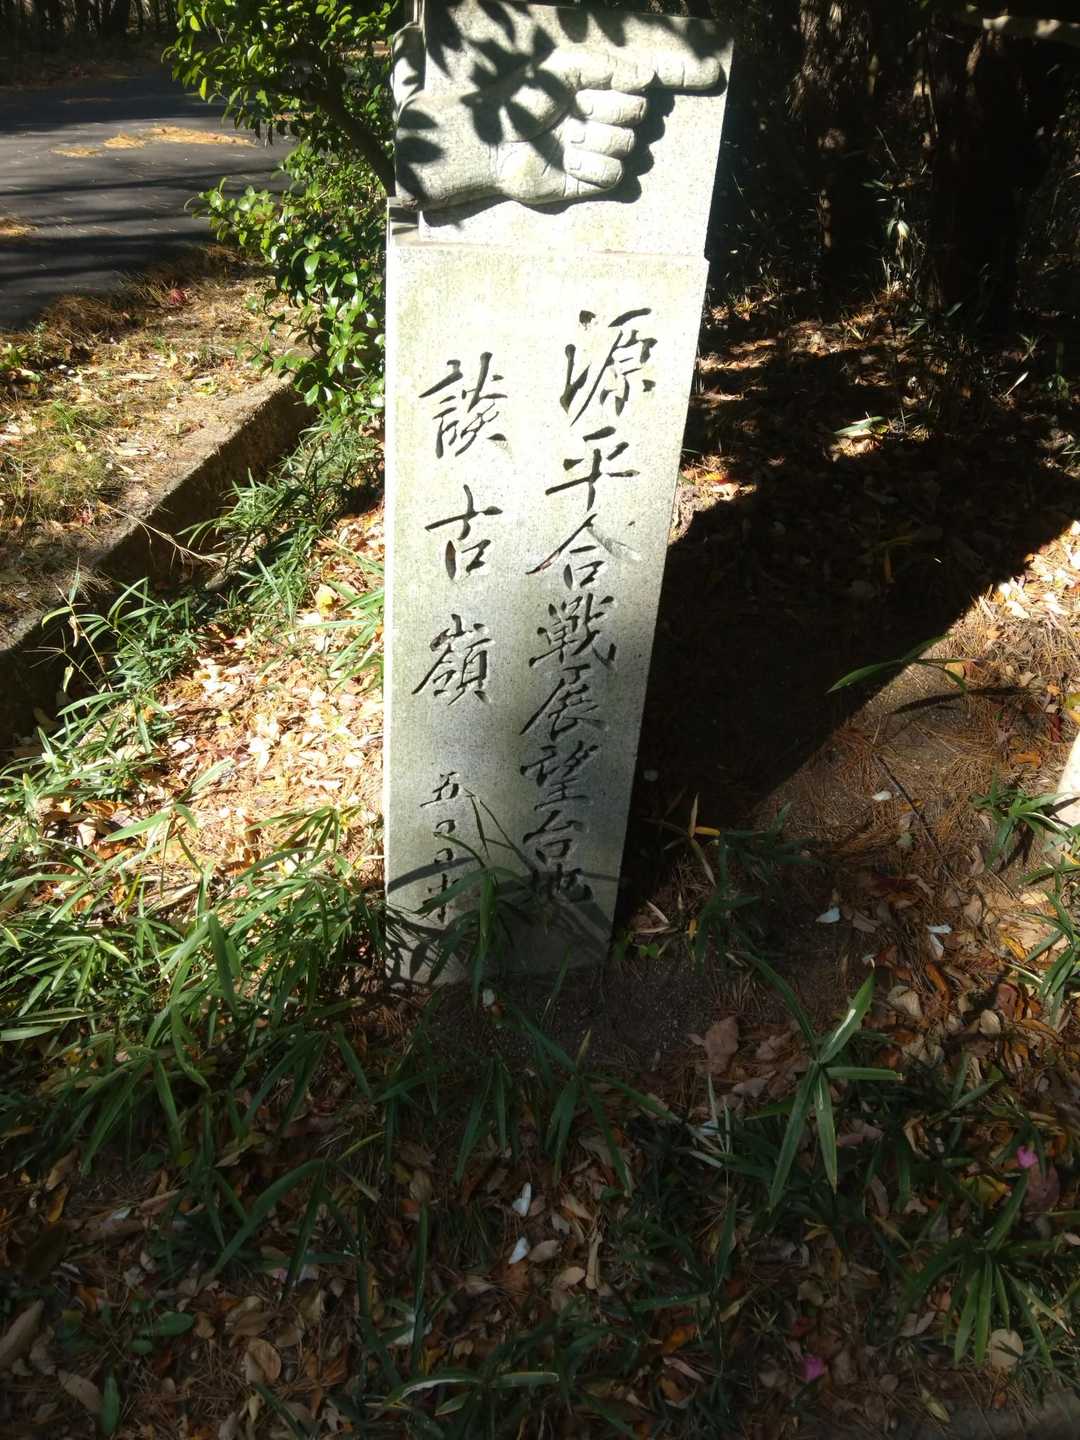 源平合戦展望台地
談古嶺